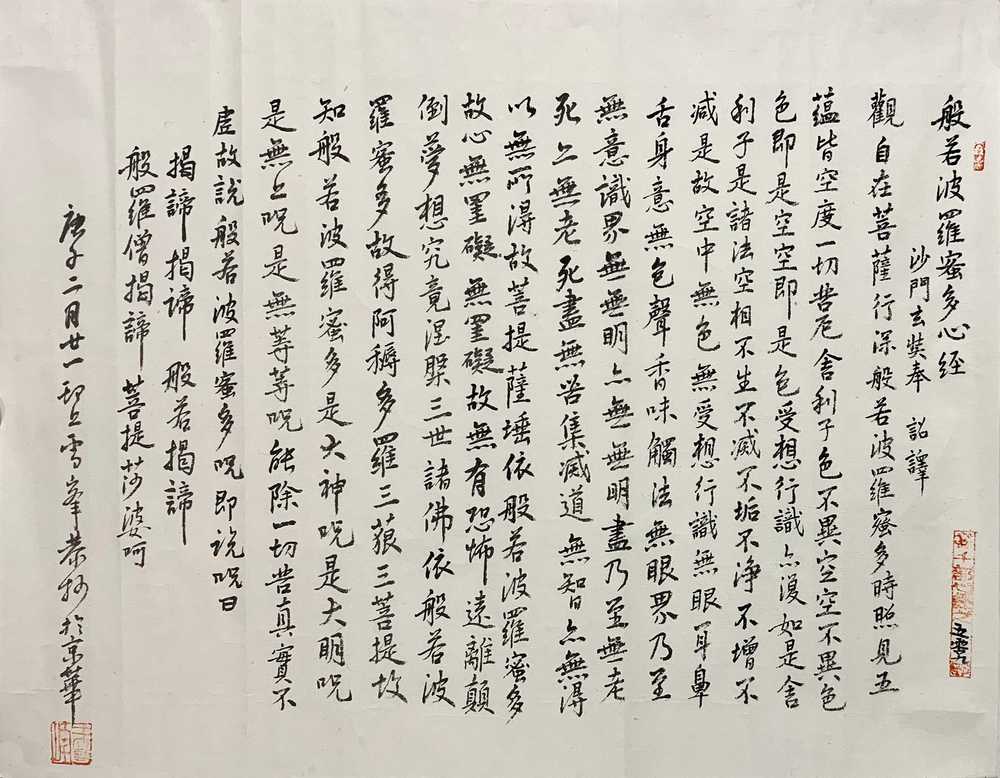 般若波羅蜜多心経
沙門玄奘奉 詔譯
觀自在菩薩行深般若波羅蜜多時照見五
蘊皆空度一切苦厄舍利子色不異空空不異色
色即是空空即是色受想行識亦復如是舍
利子是諸法空相不生不滅不垢不淨不增不
減是故空中無色無受想行識無眼耳鼻
舌身意無色聲香味觸法無眼界乃至
無意識界無無明亦無無明盡乃至無老
死亦無老死盡無苦集滅道無知日亦無得
以無所得故菩提薩埵依般若波羅蜜多
故心無罣礙無罣礙故無有恐怖遠離顛
倒夢想究竟涅槃三世諸佛依般若波
羅蜜多故得阿耨多羅三藐三菩提故
知般若波羅蜜多是大神呪是大明呪
是無上呪是無等等呪能除一切苦真實不
虛故說般若波羅蜜多呪即說呪曰
揭諦揭諦 般若揭諦
般羅僧揭諦 菩提莎婆呵
庚子二月廿一 雪峯恭抄於京華